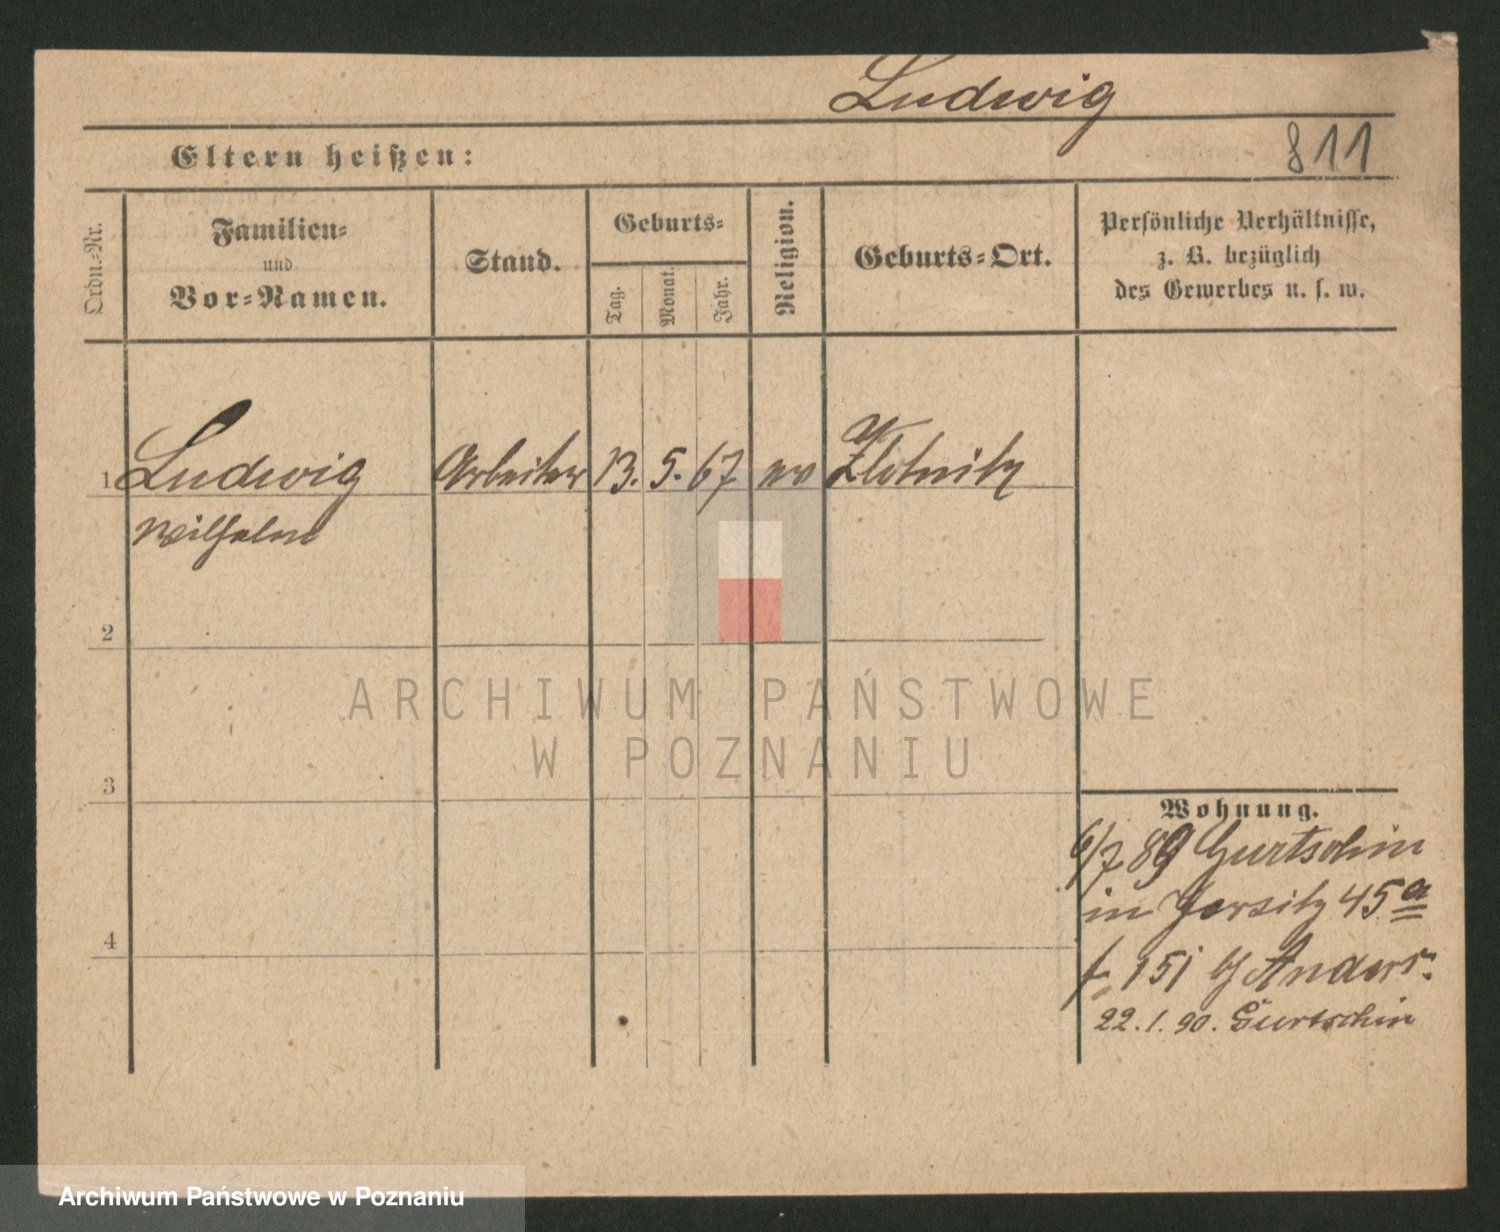 Ludwig
Eltern heißen:
811
Ordn.-Nr.
Familien-
und
Vor-Namen.
Stand.
Geburts-
Tag.
Monat.
Jahr.
Religion.
Geburts-Ort.
Persönliche Verhältnisse,
z. B. bezüglich
des Gewerbes u. s. w.
1 Ludwig Arbeiter 13. 5. 67 ev Zlotnik
Wilhelm
2
ARCHIWUM PAŃSTWOWE
W POZNANIU
3
Wohnung.
6/7 89 Gurtschin
in Jersitz 45a
f 151 b/ Anders.
22.1.90. Gurtschin
4
Archiwum Państwowe w Poznaniu